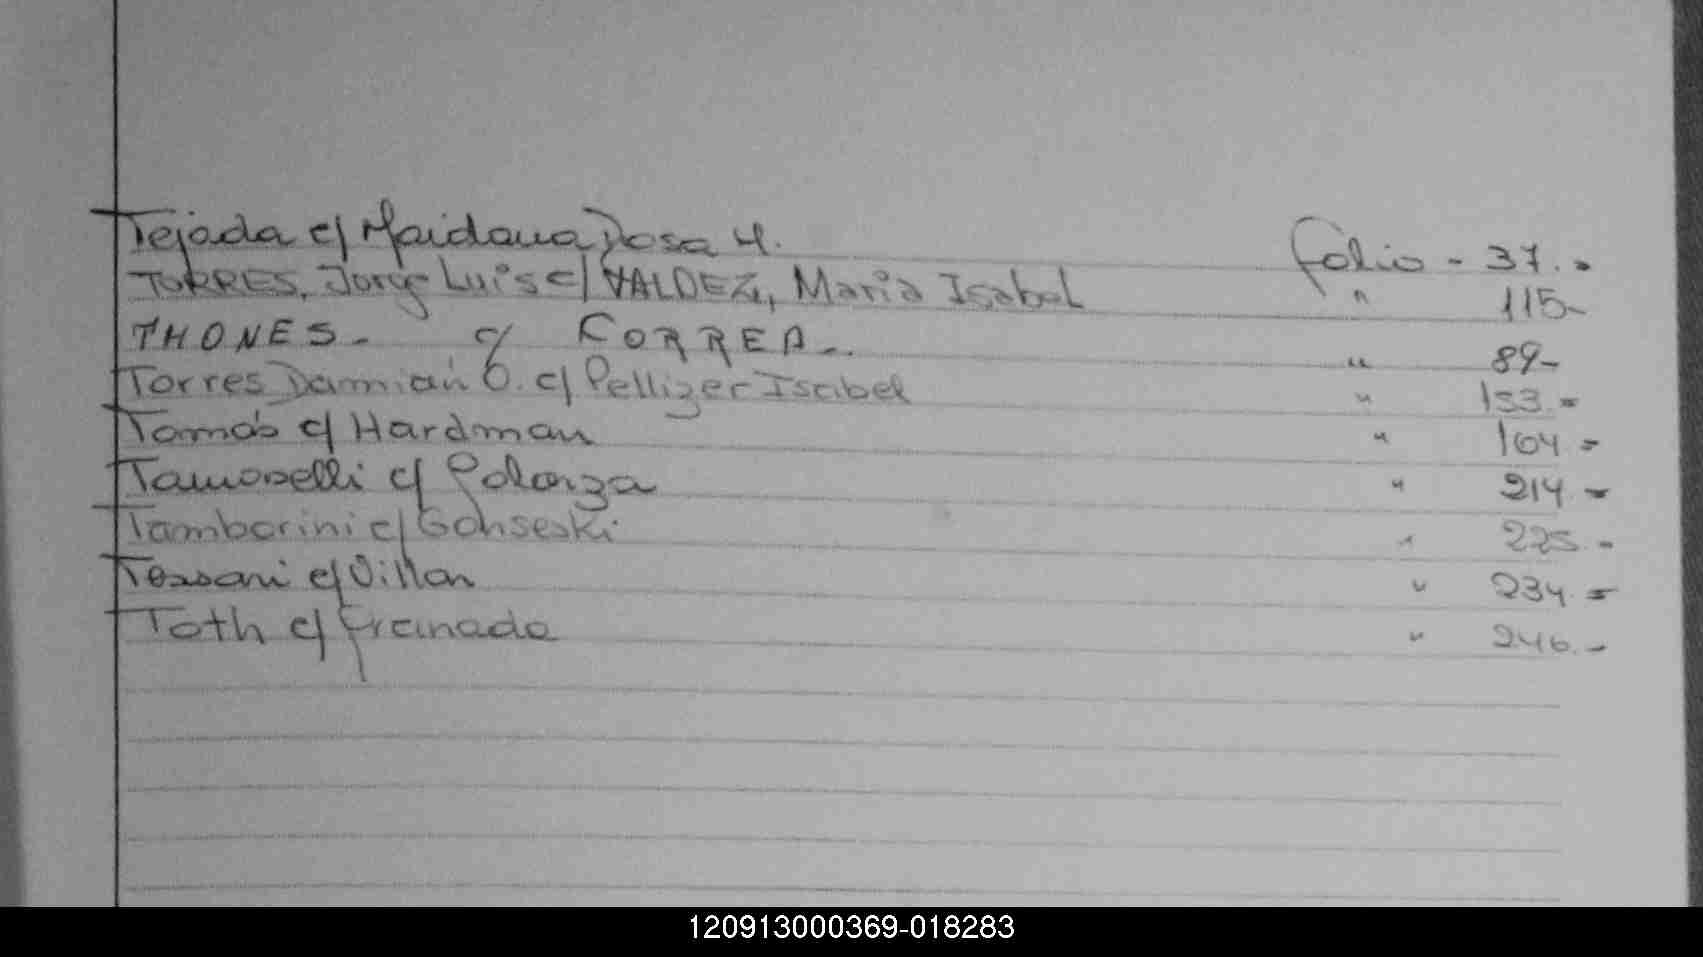 Tejada c/ Maidana Rosa H. folio - 37.-
TORRES, Jorge Luis c/ VALDEZ, Maria Isabel " 115-
THONES. c/ CORREA.. " 89-
Torres Damian O. c/ Pellizer Isabel " 153.-
Tomás c/ Hardman " 164 -
c/ Polanza " 214.-
Tamborini c/ " 225.-
Tossani c/ Villan " 234.-
Toth c/ Granada " 246.-
120913000369-018283